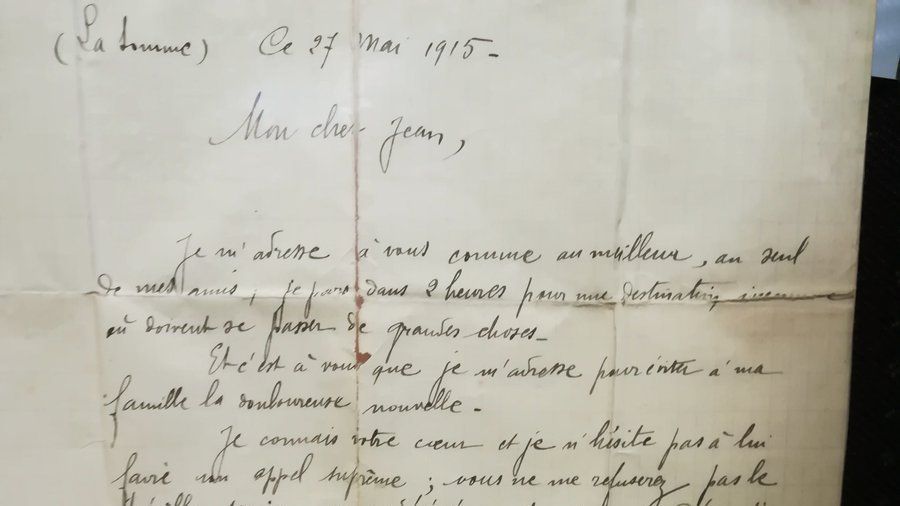 (La Somme) Ce 27 Mai 1915 -
Mon cher Jean,
Je m'adresse à vous comme au meilleur, au seul
de mes amis ; je pars dans 2 heures pour une destination inconnue
où doivent se passer de grandes choses -
Et c'est à vous que je m'adresse pour éviter à ma
famille la douloureuse nouvelle -
Je connais votre cœur et je n'hésite pas à lui
faire un appel suprême ; vous ne me refuserez pas le